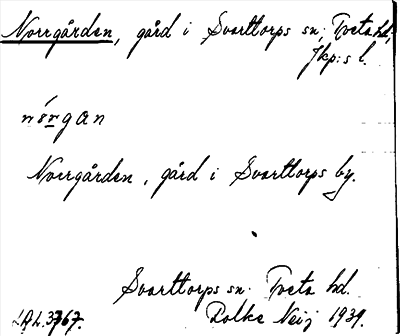 Norrgården, gård i Svarttorps sn, Tveta hd,
Jkp:s l.
nórgan
Norrgården, gård i Svarttorps by.
Svarttorps sn. Tveta hd.
1939.